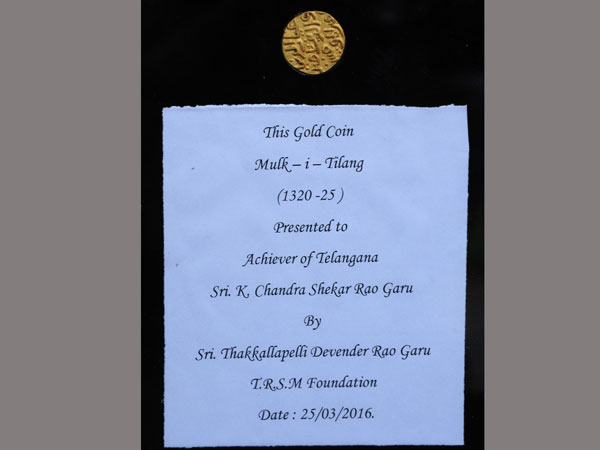 This Gold Coin
Mulk – i – Tilang
(1320 -25 )
Presented to
Achiever of Telangana
Sri. K. Chandra Shekar Rao Garu
By
Sri. Thakkallapelli Devender Rao Garu
T.R.S.M Foundation
Date : 25/03/2016.